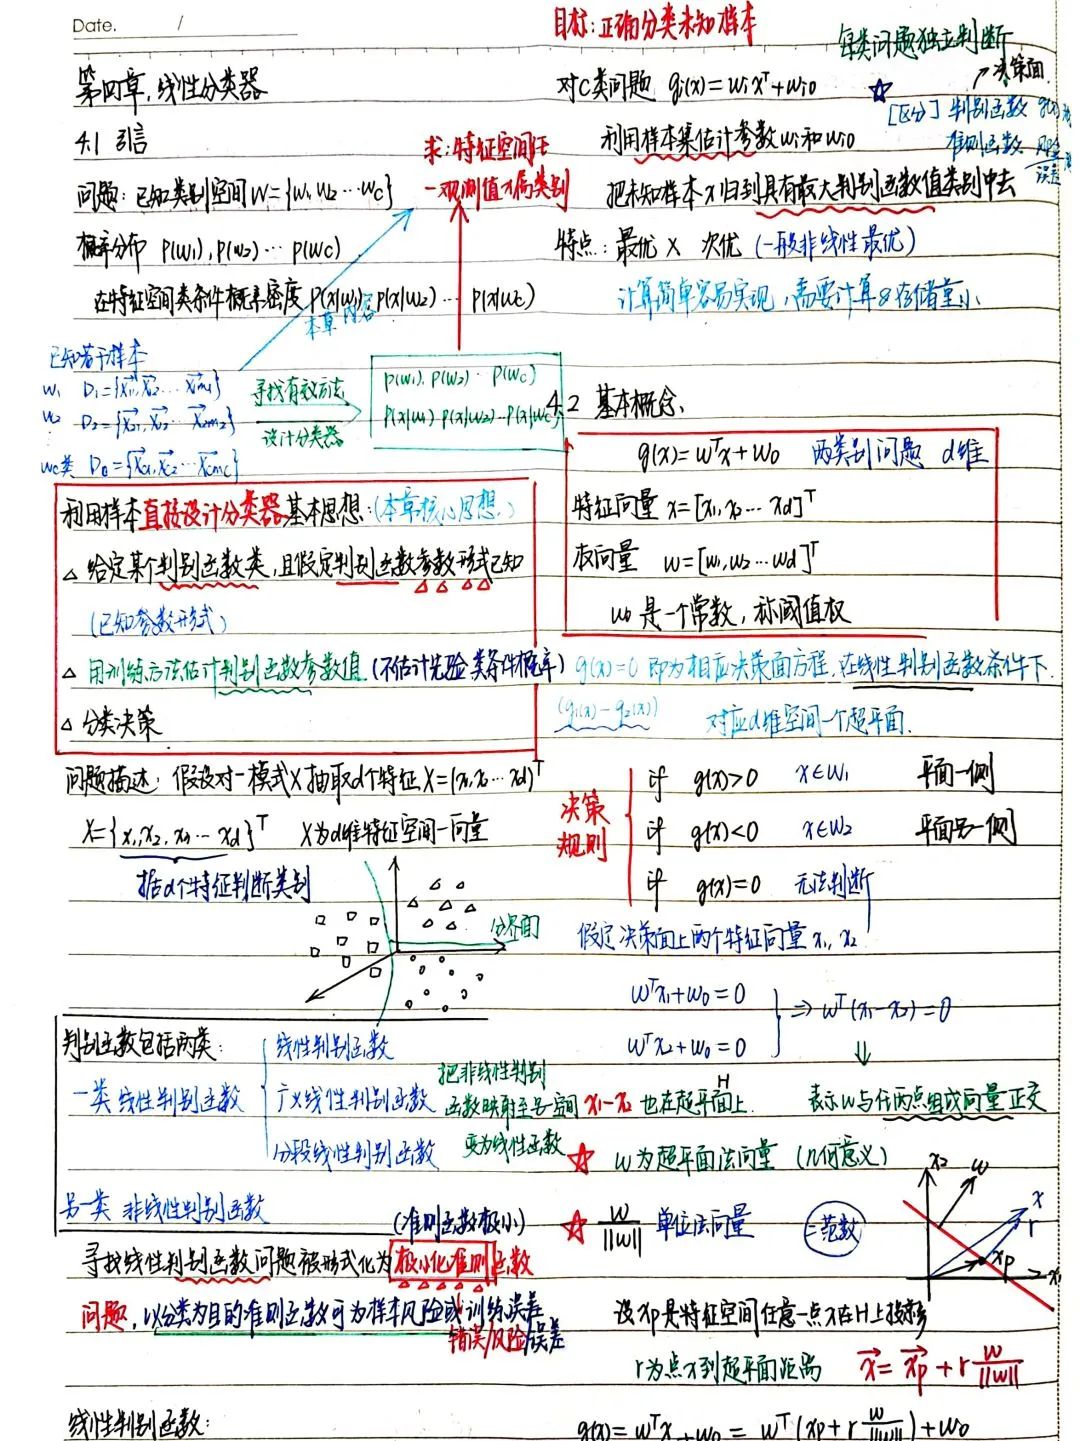 Date. /
第四章.线性分类器
4.1 引言
求:特征空间中
一观测值所属类别
问题:已知类别空间W={w₁ w₂ … wc}
概率分布 P(w₁), P(w₂) … P(wc)
在特征空间类条件概率密度 P(x|w₁), P(x|w₂) … P(x|wc)
本章内容
已知若干样本
w₁ D₁={x₁₁, x₁₂ … x₁m₁}
w₂ D₂={x₂₁, x₂₂ … x₂m₂}
wc类 Dc={xc₁, xc₂ … xcmc}
寻找有效方法
设计分类器
P(w₁), P(w₂) … P(wc)
P(x|w₁) P(x|w₂) … P(x|wc)
利用样本直接设计分类器基本思想:(本章核心思想.)
△ 给定某个判别函数类,且假定判别函数参数形式已知
(已知参数形式)
△ 用训练方法估计判别函数参数值 (不估计先验 类条件概率)
△ 分类决策
问题描述: 假设对一模式X抽取d个特征X=(x₁, x₂ … xd)ᵀ
X={x₁, x₂, x₃ … xd}ᵀ X为d维特征空间一向量
据d个特征判断类别
分界面
判别函数包括两类:
一类 线性判别函数
线性判别函数
广义线性判别函数
分段线性判别函数
把非线性判别
函数映射至另一空间
变为线性函数
另一类 非线性判别函数
(准则函数极小)
寻找线性判别函数问题被形式化为极小化准则函数
问题,以分类为目的准则函数可为样本风险或训练误差
错误/风险/误差
线性判别函数:
目标:正确分类未知样本
每类问题独立判断
对C类问题 gᵢ(x)=wᵢxᵀ+wᵢ₀
决策面
☆ [区分] 判别函数 g(x)
准则函数 风险
误差
利用样本集估计参数wᵢ和wᵢ₀
把未知样本x归到具有最大判别函数值类别中去
特点:最优 × 次优 (一般非线性最优)
计算简单容易实现,需要计算&存储量小
4.2 基本概念、
g(x)=wᵀx+w₀ 两类别问题 d维
特征向量 x=[x₁, x₂ … xd]ᵀ
权向量 w=[w₁, w₂ … wd]ᵀ
w₀ 是一个常数,称阈值权
g(x)=0 即为相应决策面方程,在线性判别函数条件下.
(g₁(x)-g₂(x)) 对应d维空间一个超平面.
决策
规则
if g(x)>0 x∈w₁ 平面一侧
if g(x)<0 x∈w₂ 平面另一侧
if g(x)=0 无法判断
假定决策面上两个特征向量x₁, x₂
wᵀx₁+w₀=0
wᵀx₂+w₀=0
⇒ wᵀ(x₁-x₂)=0
⇓
x₁-x₂ 也在超平面H上. 表示w与任两点组成向量正交
☆ w为超平面法向量 (几何意义)
☆ w/||w|| 单位法向量 二范数
x₂ w x r xp x₁
设xp是特征空间任意一点x在H上投影
r为点x到超平面距离 x=xp+r w/||w||
g(x)=wᵀx+w₀=wᵀ(xp+r w/||w||)+w₀